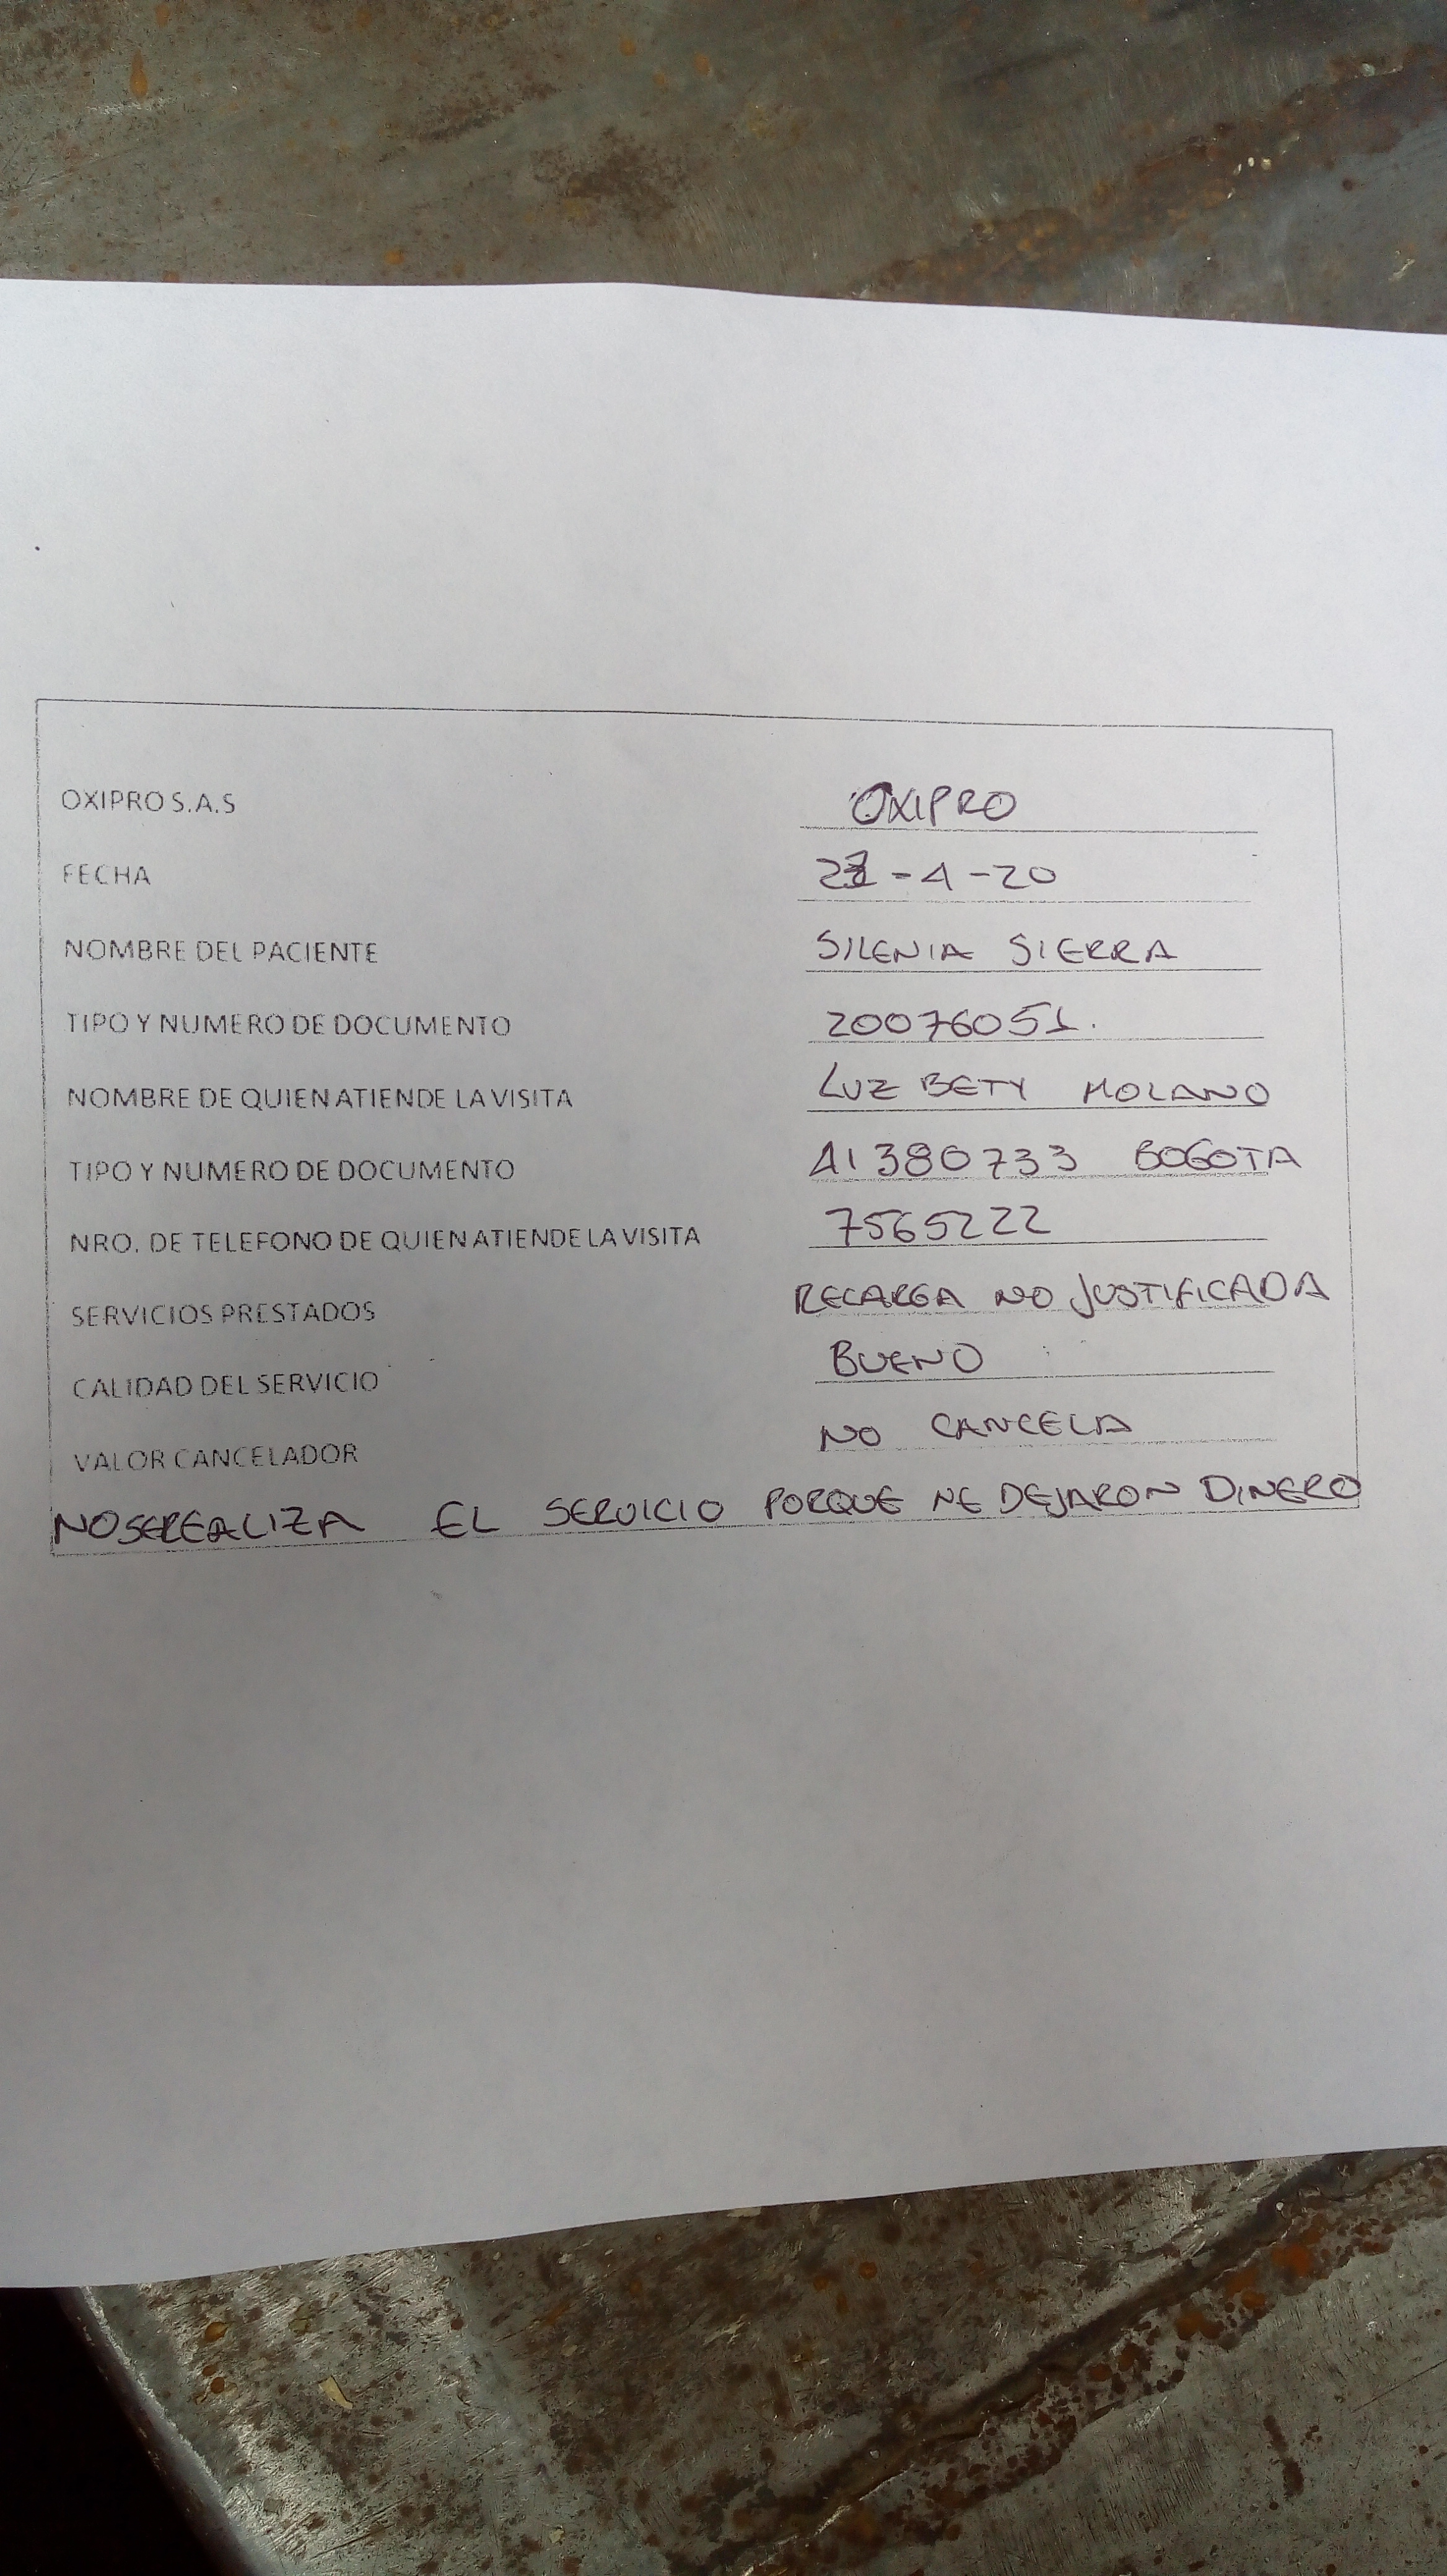 OXIPRO S.A.S OXIPRO
FECHA -4-20
NOMBRE DEL PACIENTE SILENIA SIERRA
TIPO Y NUMERO DE DOCUMENTO 20076051.
NOMBRE DE QUIEN ATIENDE LA VISITA LUZ BETY MOLANO
TIPO Y NUMERO DE DOCUMENTO 41380733 BOGOTA
NRO. DE TELEFONO DE QUIEN ATIENDE LA VISITA 7565222
SERVICIOS PRESTADOS RECARGA NO JUSTIFICADA
CALIDAD DEL SERVICIO BUENO
VALOR CANCELADOR NO CANCELA
NO SE REALIZA EL SERVICIO PORQUE NE DEJARON DINERO